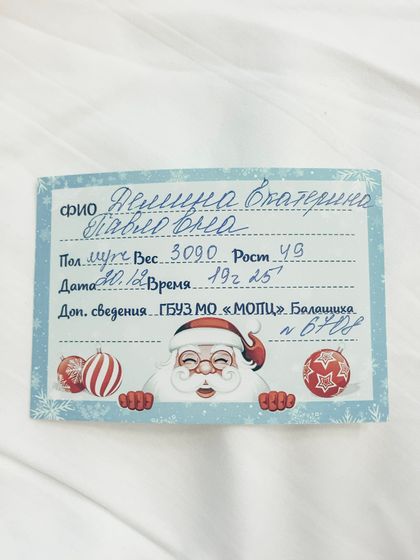 ФИО Демина Екатерина
Павловна
Пол муж Вес 3090 Рост 49
Дата 20.12 Время 19ч 25'
Доп. сведения ГБУЗ МО «МОПЦ» Балашиха
N 6708